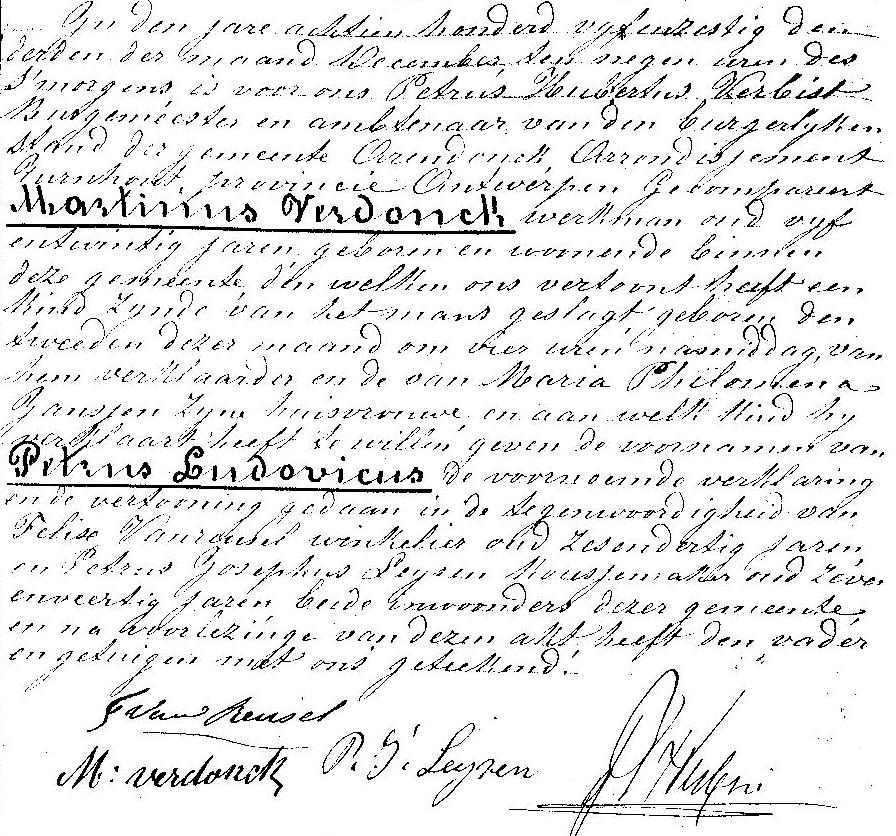 In den jare achtien honderd vyfenzestig den
derden der maand December ten negen uren des
s'morgens is voor ons Petrus Hubertus Verbist
Burgemeester en ambtenaar van den burgerlyken
stand der gemeente Arendonck Arrondissement
Turnhout, provincie Antwerpen Gecompareert
Martinus Verdonck werkman oud vyf
entwintig jaren, geboren en woonende binnen
deze gemeente, den welken ons vertoont heeft een
kind zynde van het mans geslagt geboren den
tweeden dezer maand om vier uren namiddag, van
hem verklaarder en de van Maria Philomena
Janssen zyne huisvrouwe, en aan welk kind hy
verklaart heeft te willen geven de voornamen van
Petrus Ludovicus de voornoemde verklaring
ende vertooning gedaan in de tegenwoordigheid van
Felise Vanreusel winkelier oud zesendertig jaren
en Petrus Josephus Leysen kousjemaker oud zeven
enveertig jaren beide inwoonders dezer gemeente
en na voorlezinge van dezen akt heeft den vader
en getuigen met ons geteekend.
F Van Reusel
M: verdonck P. J. Leysen